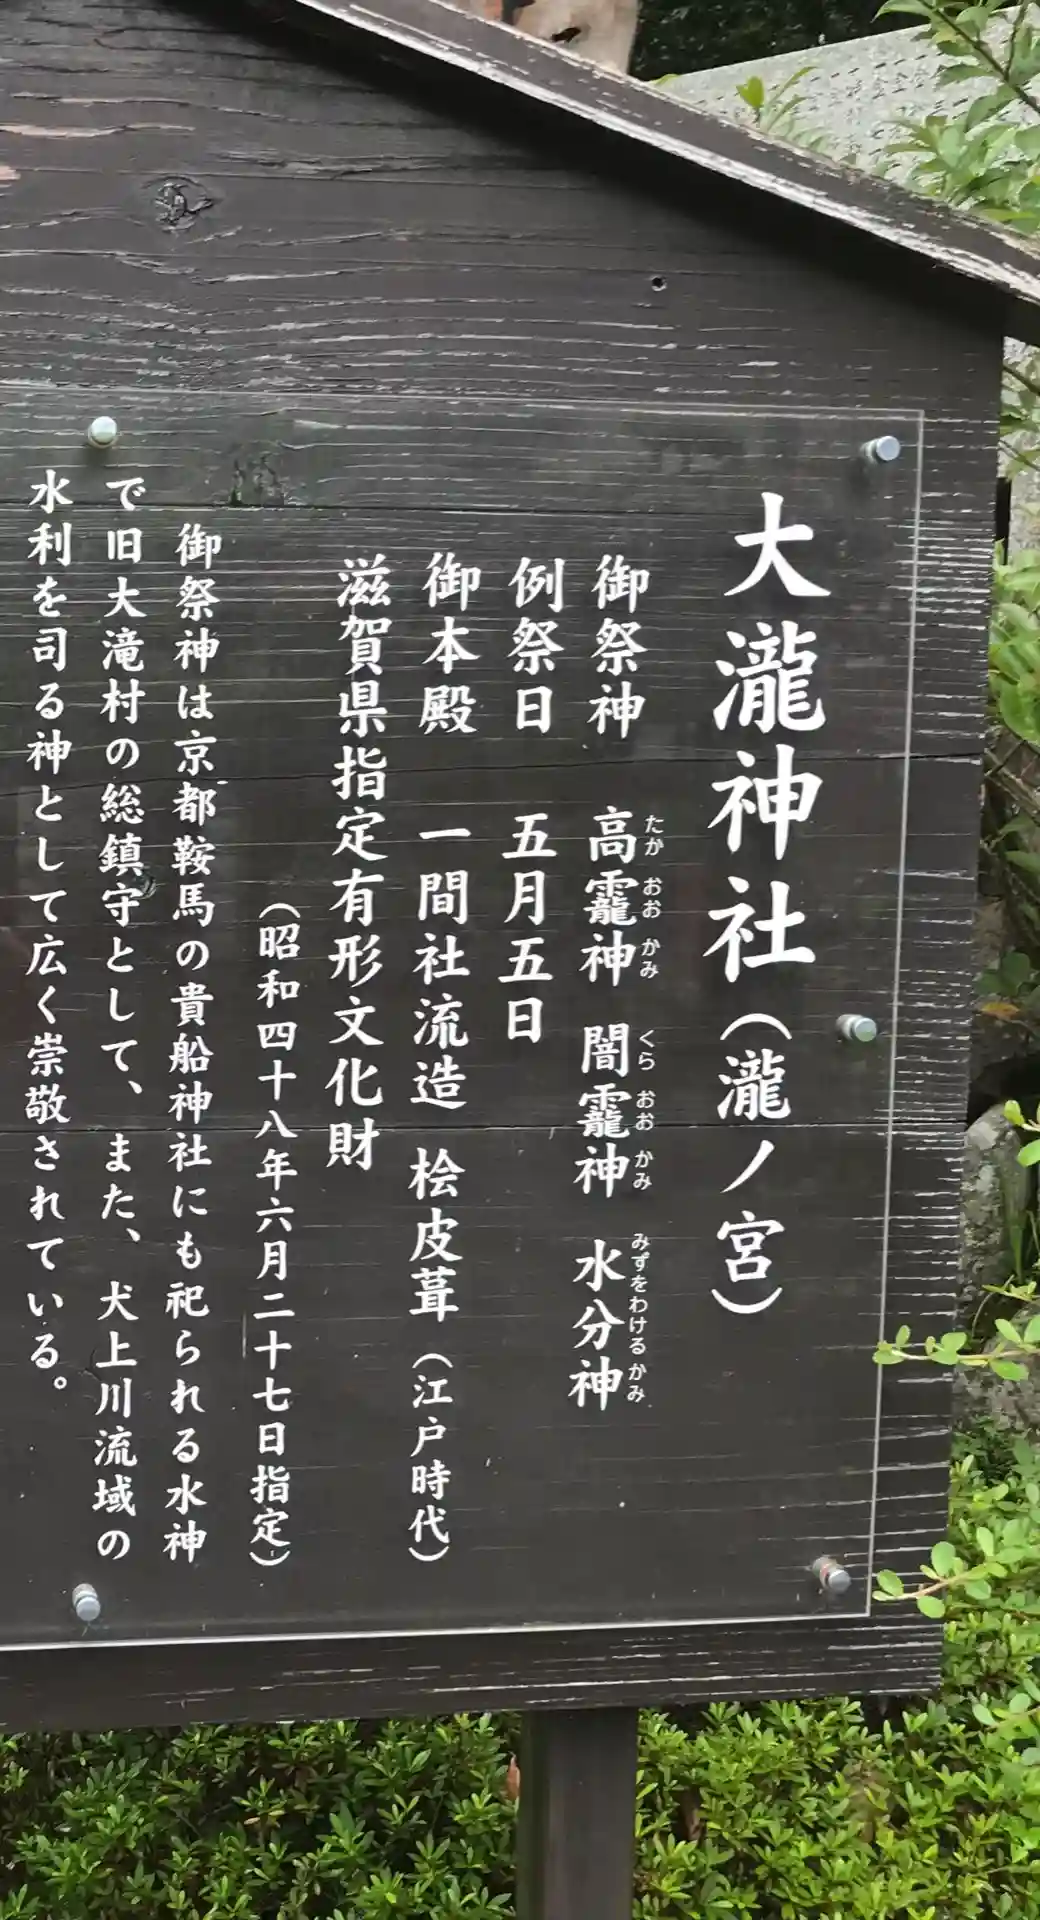 大瀧神社（瀧ノ宮）
御祭神　高龗神　闇龗神　水分神
たか おお かみ　くら おお かみ　みずをわける かみ
例祭日　五月五日
御本殿　一間社流造　桧皮葺（江戸時代）
滋賀県指定有形文化財
（昭和四十八年六月二十七日指定）
御祭神は京都鞍馬の貴船神社にも祀られる水神
で旧大滝村の総鎮守として、また、犬上川流域の
水利を司る神として広く崇敬されている。